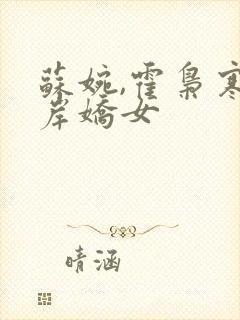 蘇婉,霍梟寒
岸嬌女
晴涵